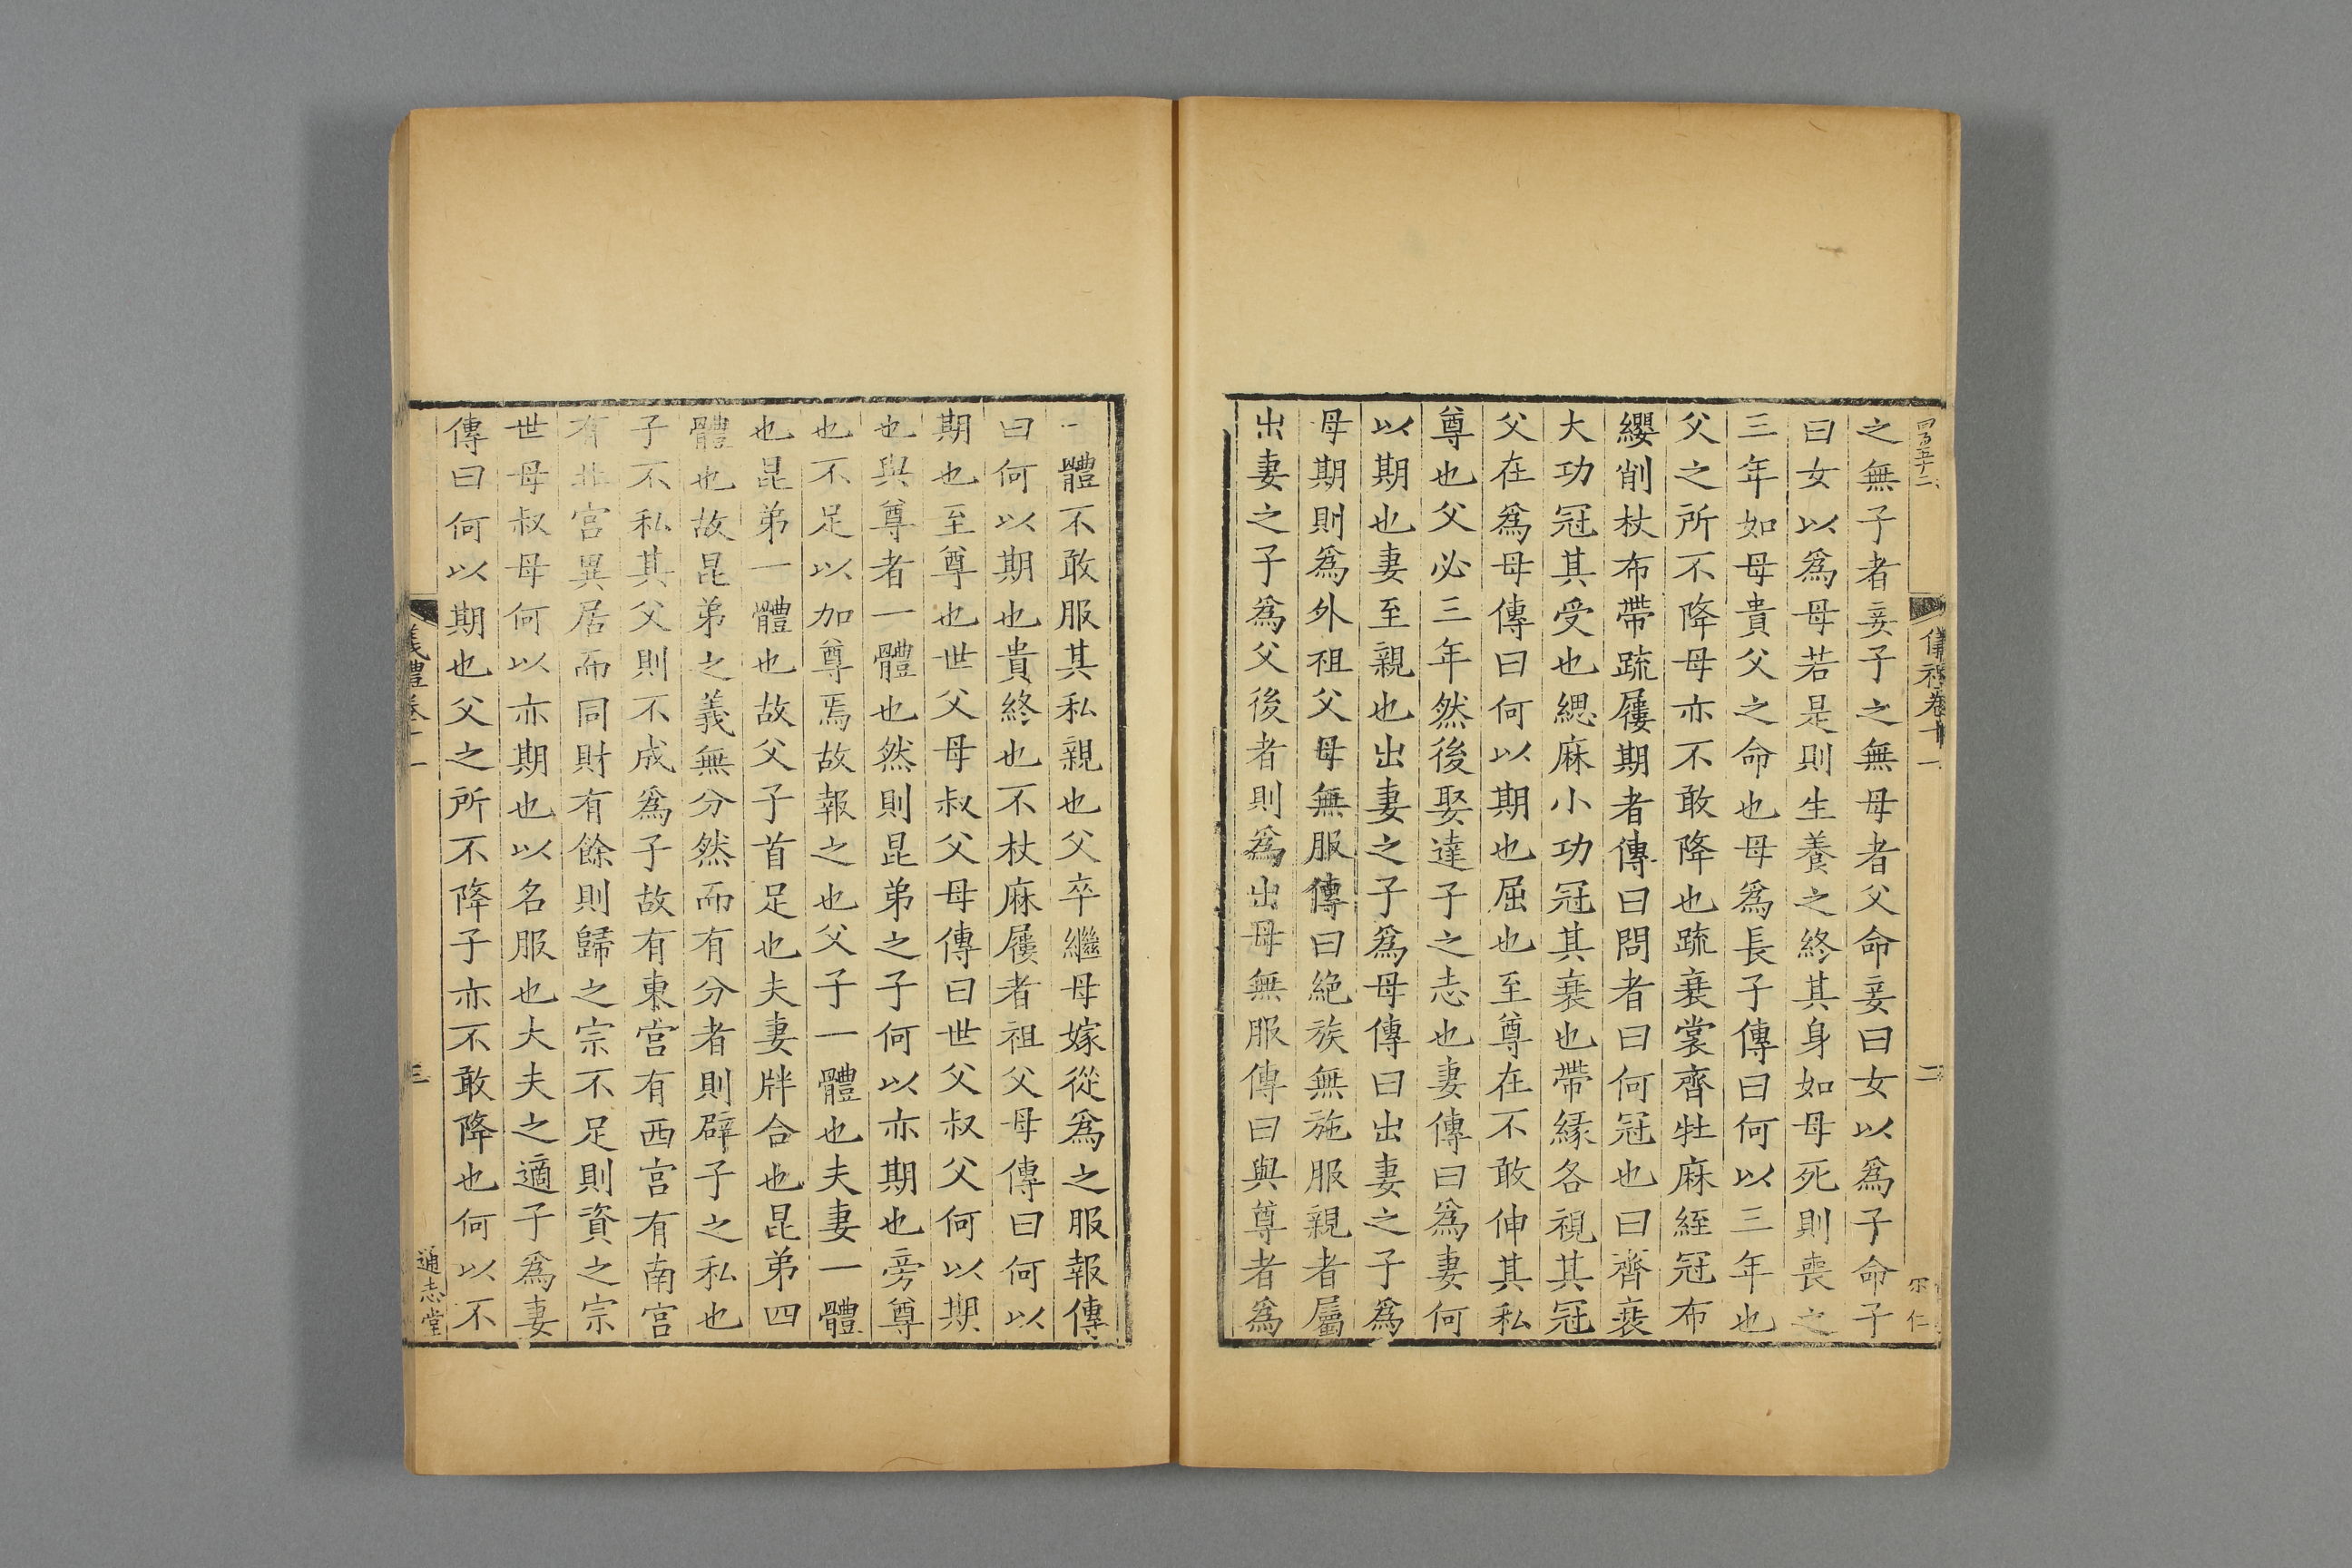 四百五十二
儀礼卷十一
二
仁
之無子者妾子之無母者父命妾曰女以爲子命子
曰女以爲母若是則生養之終其身如母死則喪之
三年如母貴父之命也母爲長子傳曰何以三年也
父之所不降母亦不敢降也疏衰裳齊牡麻絰冠布
纓削杖布帶疏屨期者傳曰問者曰何冠也曰齊衰
大功冠其受也緦麻小功冠其衰也帶緣各視其冠
父在爲母傳曰何以期也屈也至尊在不敢伸其私
尊也父必三年然後娶達子之志也妻傳曰爲妻何
以期也妻至親也出妻之子爲母傳曰出妻之子爲
母期則爲外祖父母無服傳曰絕族無施服親者屬
出妻之子爲父後者則爲出母無服傳曰與尊者爲
一體不敢服其私親也父卒繼母嫁從爲之服報傳
曰何以期也貴終也不杖麻屨者祖父母傳曰何以
期也至尊也世父母叔父母傳曰世父叔父何以期
也與尊者一體也然則昆弟之子何以亦期也旁尊
也不足以加尊焉故報之也父子一體也夫妻一體
也昆弟一體也故父子首足也夫妻牉合也昆弟四
體也故昆弟之義無分然而有分者則辟子之私也
子不私其父則不成爲子故有東宮有西宮有南宮
有北宮異居而同財有餘則歸之宗不足則資之宗
世母叔母何以亦期也以名服也大夫之適子爲妻
傳曰何以期也父之所不降子亦不敢降也何以不
儀禮卷十一
三
通志堂